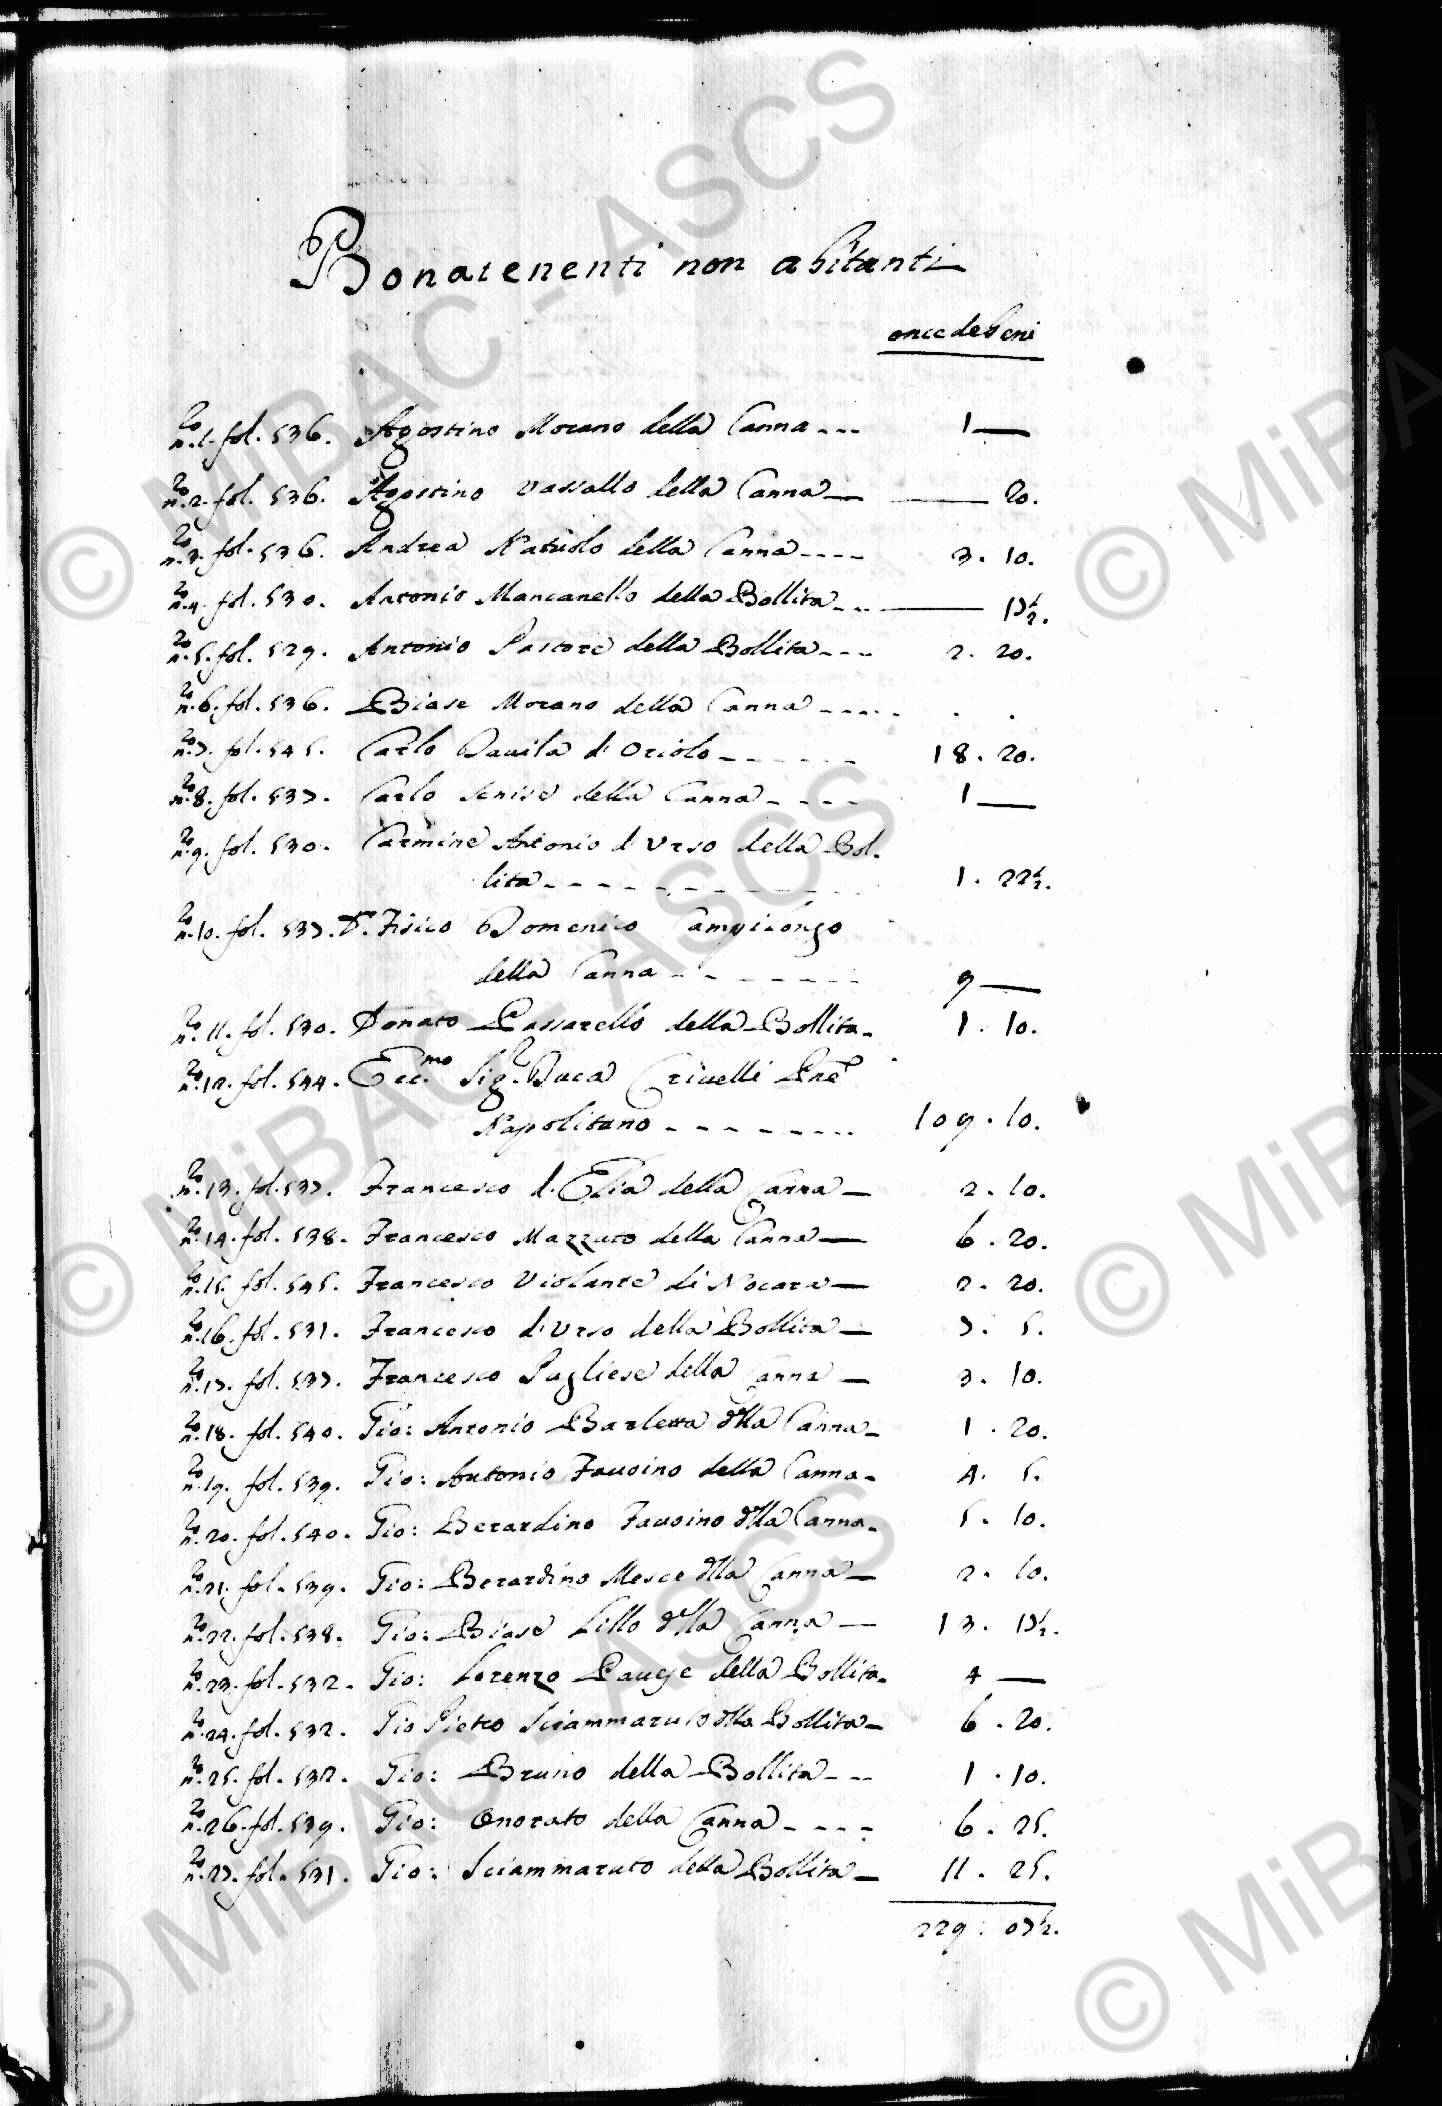 Bonatenenti non abitanti
once de beni
n.ro 1. fol. 536. Agostino Morano della Canna --- 1 —
n.ro 2. fol. 536. Agostino Vassallo della Canna — — 20.
n.ro 3. fol. 536. Andrea Natriolo della Canna ---- 3. 10.
n.ro 4. fol. 530. Antonio Mancanello della Bollita -- — 17½.
n.ro 5. fol. 529. Antonio Pastore della Bollita --- 2. 20.
n.ro 6. fol. 536. Biase Morano della Canna ----- . .
n.ro 7. fol. 545. Carlo Davila d'Oriolo ------ 18. 20.
n.ro 8. fol. 537. Carlo Senise della Canna ---- 1 —
n.ro 9. fol. 530. Carmine Antonio d'Urso della Bol.
lita ------------ 1. 22½.
n.ro 10. fol. 537. Dr. Fisico Domenico Campilongo
della Canna ------- 9 —
n.ro 11. fol. 530. Donato Passarello della Bollita - 1. 10.
n.ro 12. fol. 544. Ecc.mo Sig.r Duca Crivelli Pne
Napolitano -------- 109. 10.
n.ro 13. fol. 537. Francesco d'Elia della Canna — 2. 10.
n.ro 14. fol. 538. Francesco Mazzuto della Canna — 6. 20.
n.ro 15. fol. 545. Francesco Violante di Nocara — 2. 20.
n.ro 16. fol. 531. Francesco d'Urso della Bollita — 7. 5.
n.ro 17. fol. 537. Francesco Pugliese della Canna — 3. 10.
n.ro 18. fol. 540. Gio: Antonio Barletta dlla Canna - 1. 20.
n.ro 19. fol. 539. Gio: Antonio Favoino della Canna - 4. 5.
n.ro 20. fol. 540. Gio: Berardino Favoino dlla Canna - 5. 10.
n.ro 21. fol. 539. Gio: Berardino Mesce dlla Canna — 2. 10.
n.ro 22. fol. 538. Gio: Biase Lillo dlla Canna — 13. 17½.
n.ro 23. fol. 532. Gio: Lorenzo Pauge della Bollita - 4 —
n.ro 24. fol. 532. Gio Pietro Sciammaruto dlla Bollita — 6. 20.
n.ro 25. fol. 532. Gio: Bruno della Bollita --- 1. 10.
n.ro 26. fol. 539. Gio: Onorato della Canna ---- 6. 25.
n.ro 27. fol. 531. Gio: Sciammaruto della Bollita — 11. 25.
229: 07½.
© MiBAC - ASCS
© MiBAC - ASCS
© MiBAC - ASCS
© MiBA
© MiBA
© MiBA